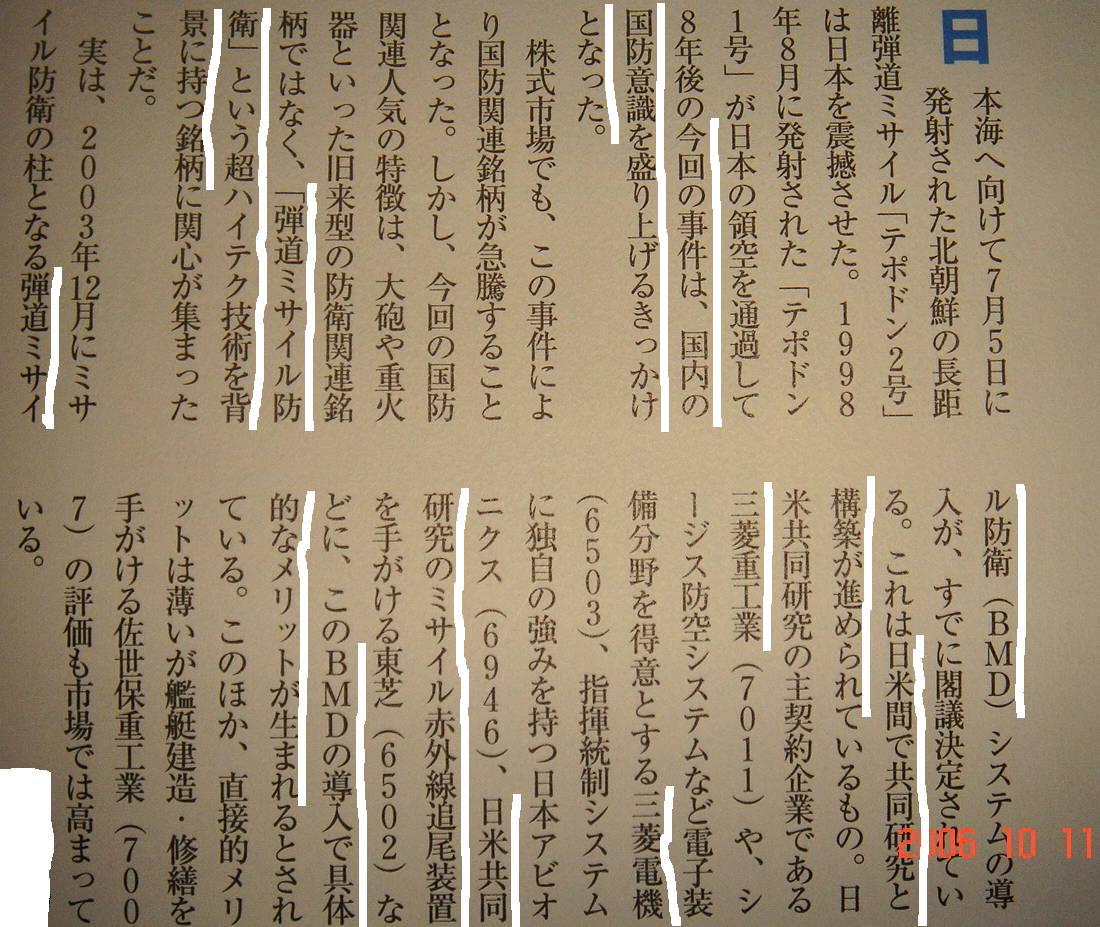 日本海へ向けて7月5日に
発射された北朝鮮の長距
離弾道ミサイル「テポドン2号」
は日本を震撼させた。1998
年8月に発射された「テポドン
1号」が日本の領空を通過して
8年後の今回の事件は、国内の
国防意識を盛り上げるきっかけ
となった。
株式市場でも、この事件によ
り国防関連銘柄が急騰すること
となった。しかし、今回の国防
関連人気の特徴は、大砲や重火
器といった旧来型の防衛関連銘
柄ではなく、「弾道ミサイル防
衛」という超ハイテク技術を背
景に持つ銘柄に関心が集まった
ことだ。
実は、2003年12月にミサ
イル防衛の柱となる弾道ミサイ
ル防衛(BMD)システムの導
入が、すでに閣議決定されてい
る。これは日米間で共同研究と
構築が進められているもの。日
米共同研究の主契約企業である
三菱重工業(7011)や、シ
ージス防空システムなど電子装
備分野を得意とする三菱電機
(6503)、指揮統制システム
に独自の強みを持つ日本アビオ
ニクス(6946)、日米共同
研究のミサイル赤外線追尾装置
を手がける東芝(6502)な
どに、このBMDの導入で具体
的なメリットが生まれるとされ
ている。このほか、直接的メリ
ットは薄いが艦艇建造・修繕を
手がける佐世保重工業(700
7)の評価も市場では高まって
いる。
2006 10 11